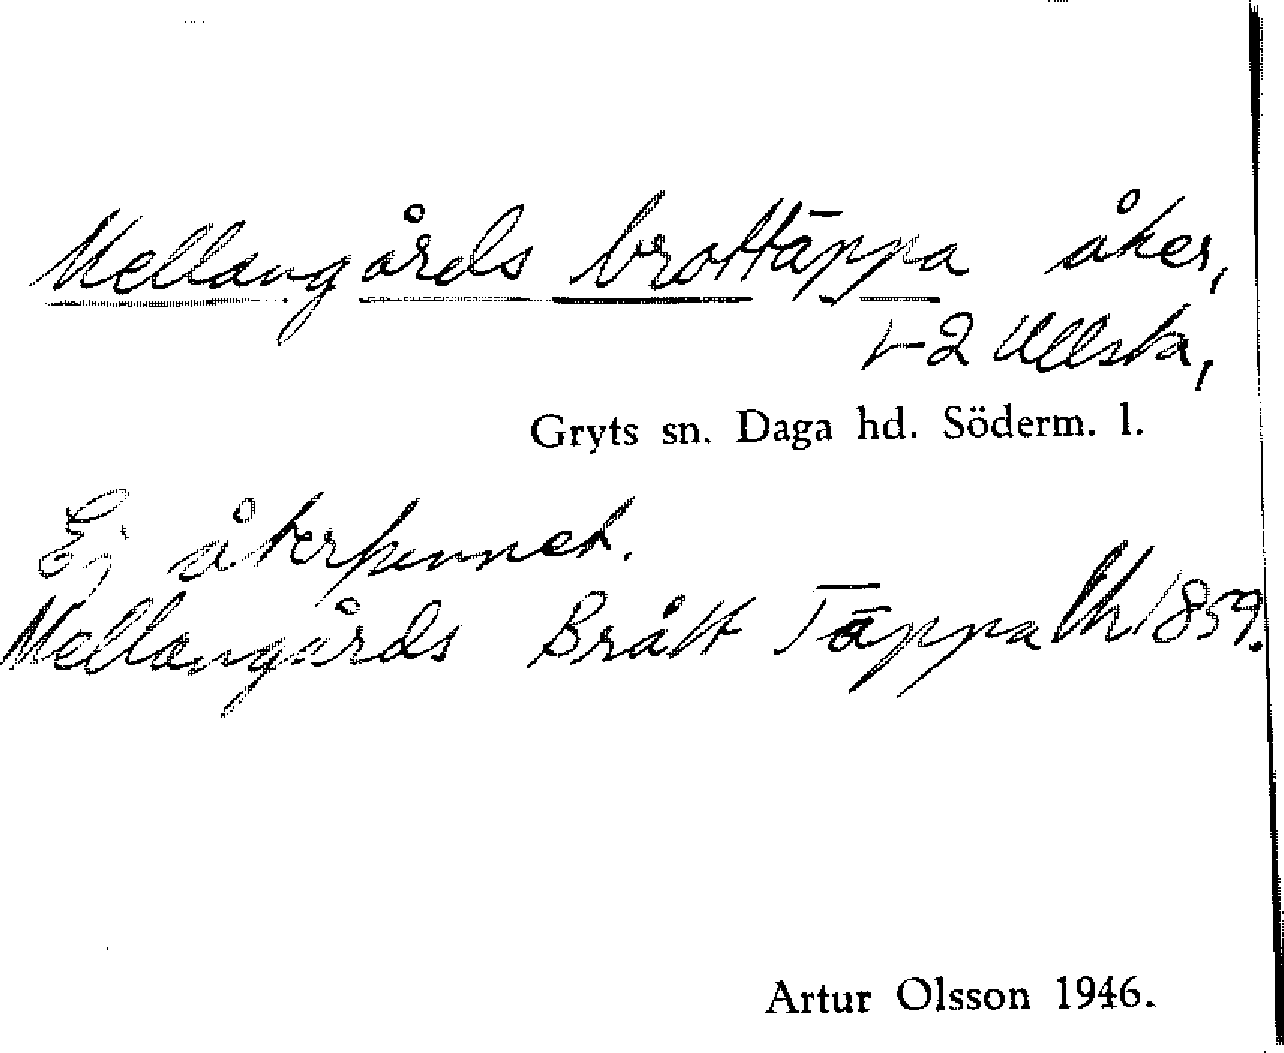 Mellangårds brottäppa åker,
1-2 Ullsta,
Gryts sn. Daga hd. Söderm. l.
Ej återfunnet.
Mellangårds Brått Täppa Lh 1859.
Artur Olsson 1946.